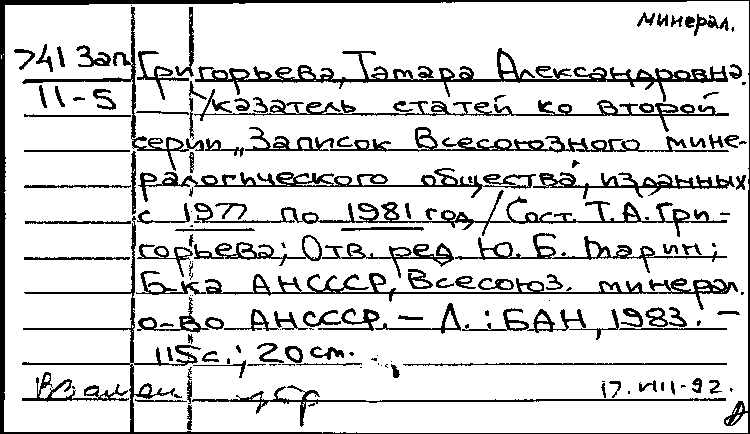 минерал.
741 Зап Григорьева, Тамара Александровна.
11-5 Указатель статей ко второй
серии „Записок Всесоюзного мине-
ралогического общества", изданных
с 1977 по 1981 год / Сост. Т.А. Гри-
горьева; Отв. ред. Ю. Б. Марин;
Б-ка АНСССР, Всесоюз. минерал.
о-во АНСССР. — Л.: БАН, 1983. —
115 с.; 20 см.
Взамен
17.VIII-92.